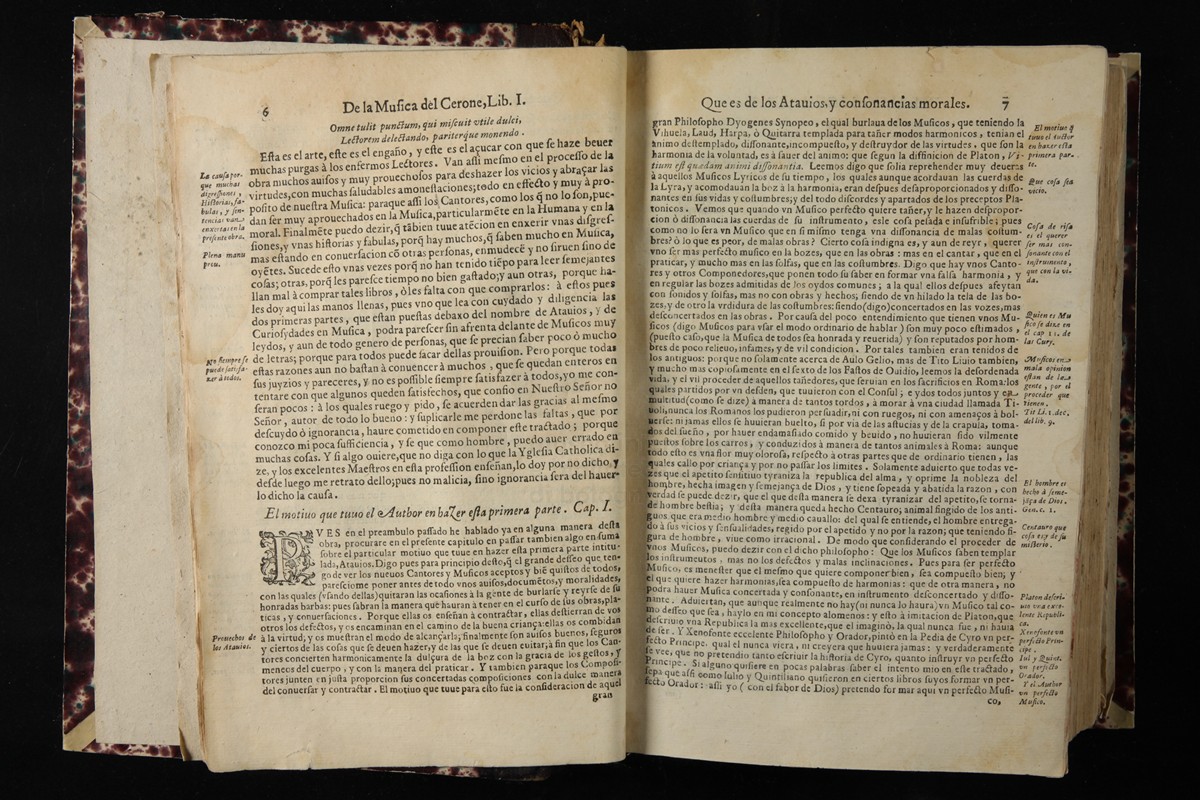 6
De la Musica del Cerone, Lib. I.
Omne tulit punctum, qui miscuit vtile dulci,
Lectorem delectando, pariterque monendo.
Esta es el arte, este es el engaño, y este es el açucar con que se haze beuer
muchas purgas à los enfermos Lectores. Van assi mesmo en el processo de la
obra muchos auisos y muy prouechosos para deshazer los vicios y abraçar las
virtudes, con muchas saludables amonestaciones; todo en effecto y muy à pro-
posito de nuestra Musica: paraque assi los Cantores, como los q̃ no lo son, pue-
dan ser muy aprouechados en la Musica, particularmẽte en la Humana y en la
moral. Finalmẽte puedo dezir, q̃ tãbien tuue atẽcion en enxerir vnas disgres-
siones, y vnas historias y fabulas, porq̃ hay muchos, q̃ saben mucho en Musica,
mas estando en conuersacion cõ otras personas, enmudecẽ y no siruen sino de
oyẽtes. Sucede esto vnas vezes porq̃ no han tenido tiẽpo para leer semejantes
cosas; otras, porq̃ les paresce tiempo no bien gastado; y aun otras, porque ha-
llan mal à comprar tales libros, ò les falta con que comprarlos: à estos pues
les doy aqui las manos llenas, pues vno que lea con cuydado y diligencia las
dos primeras partes, que estan puestas debaxo del nombre de Atauios, y de
Curiosydades en Musica, podra parescer sin afrenta delante de Musicos muy
leydos, y aun de todo genero de personas, que se precian saber poco ò mucho
de letras; porque para todos puede sacar dellas prouision. Pero porque todas
estas razones aun no bastan à conuencer à muchos, que se quedan enteros en
sus juyzios y pareceres, y no es possible siempre satisfazer à todos, yo me con-
tentare con que algunos queden satisfechos, que confio en Nuestro Señor no
seran pocos: à los quales ruego y pido, se acuerden dar las gracias al mesmo
Señor, autor de todo lo bueno: y suplicarle me perdone las faltas, que por
descuydo ò ignorancia, haure cometido en componer este tractado; porque
conozco mi poca sufficiencia, y se que como hombre, puedo auer errado en
muchas cosas. Y si algo ouiere, que no diga con lo que la Yglesia Catholica di-
ze, y los excelentes Maestros en esta profession enseñan, lo doy por no dicho, y
desde luego me retrato dello; pues no malicia, sino ignorancia sera del hauer-
lo dicho la causa.
La causa por-
que muchas
digresiones,
Historias, fa-
bulas, y sen-
tencias van
enxertas en la
presente obra.
Plena manu
preu.
No siempre se
puede satisfa-
zer à todos.
El motiuo que tuuo el Author en hazer esta primera parte. Cap. I.
PVES en el preambulo passado he hablado ya en alguna manera desta
obra, procurare en el presente capitulo en passar tambien algo en suma
sobre el particular motiuo que tuue en hazer esta primera parte intitu-
lada, Atauios. Digo pues para principio desto, q̃ el grande desseo que, ten-
go de ver los nueuos Cantores y Musicos aceptos y biẽ quistos de todos,
parescióme poner antes de todo vnos auisos, documẽtos, y moralidades,
con las quales (vsando dellas) quitaran las ocasiones à la gente de burlarse y reyrse de su
honradas barbas: pues sabran la manera que hauran à tener en el curso de sus obras, pla-
ticas, y conuersaciones. Porque ellas os enseñan à contractar, ellas destierran de vos
otros los defectos, y os encaminan en el camino de la buena criança: ellas os combidan
à la virtud; y os muestran el modo de alcançarla; finalmente son auisos buenos, seguros
y ciertos de las cosas que se deuen hazer, y de las que se deuen euitar; à fin que los Can-
tores concierten harmonicamente la dulçura de la boz con la gracia de los gestos, y
meneos del cuerpo, y con la manera del praticar. Y tambien paraque los Composi-
tores junten en justa proporcion sus concertadas composiciones con la dulce manera
del conuersar y contractar. El motiuo que tuue para esto fue la consideracion de aquel
gran
Prouechos de
los Atauios.
Que es de los Atauios, y consonancias morales.
7
gran Philosopho Dyogenes Synopeo, el qual burlaua de los Musicos, que teniendo la
Vihuela, Laud, Harpa, ò Quitarra templada para tañer modos harmonicos, tenian el
animo destemplado, dissonante, incompuesto, y destruydor de las virtudes, que son la
harmonia de la voluntad, es à sauer del animo: que segun la diffinicion de Platon, Vi-
tium est quædam animi dissonantia. Leemos digo que solia reprehender muy deueras
à aquellos Musicos Lyricos de su tiempo, los quales aunque acordauan las cuerdas de
la Lyra, y acomodauan la boz à la harmonia, eran despues desaproporcionados y disso-
nantes en sus vidas y costumbres; y del todo discordes y apartados de los preceptos Pla-
tonicos. Vemos que quando vn Musico perfecto quiere tañer, y le hazen despropor-
cion ò dissonancia las cuerdas de su instrumento, esle cosa pesada e insufrible; pues
como no lo sera vn Musico que en si mismo tenga vna dissonancia de malas costum-
bres? ò lo que es peor, de malas obras? Cierto cosa indigna es, y aun de reyr, querer
vno ser mas perfecto musico en la bozes, que en las obras: mas en el cantar, que en el
praticar, y mucho mas en las solfas, que en las costumbres. Digo que hay vnos Canto-
res y otros Componedores, que ponen todo su saber en formar vna falsa harmonia, y
en regular las bozes admitidas de los oydos comunes; a la qual ellos despues afeytan
con sonidos y solfas, mas no con obras y hechos; siendo de vn hilado la tela de las bo-
zes, y de otro la vrdidura de las costumbres: siendo (digo) concertados en las vozes, mas
desconcertados en las obras. Por causa del poco entendimiento que tienen vnos Mu-
sicos (digo Musicos para vsar el modo ordinario de hablar) son muy poco estimados,
(puesto caso, que la Musica de todos sea honrada y reuerida) y son reputados por hom-
bres de poco relieuo, infames, y de vil condicion. Por tales tambien eran tenidos de
los antiguos: porque no solamente acerca de Aulo Gelio, mas de Tito Liuio tambien,
y mucho mas copiosamente en el sexto de los Fastos de Ouidio, leemos la desordenada
vida, y el vil proceder de aquellos tañedores, que seruian en los sacrificios en Roma: los
quales partidos por vn desden, que tuuieron con el Consul; e ydos todos juntos y en
multitud (como se dize) a manera de tantos tordos, à morar à vna ciudad llamada Ti-
uoli, nunca los Romanos los pudieron persuadir, ni con ruegos, ni con amenaços à bol-
uerse: ni jamas ellos se huuieran buelto, si por via de las astucias y de la crapula, toma-
dos del sueño, por hauer endamasiado comido y beuido, no huuieran sido vilmente
puestos sobre los carros, y conduzidos à manera de tantos animales à Roma: aunque
todo esto es vna flor muy olorosa, respecto à otras partes que de ordinario tienen, las
quales callo por criança y por no passar los limites. Solamente aduierto que todas ve-
zes que el apetito sensitiuo tyraniza la republica del alma, y oprime la nobleza del
hombre, hecha imagen y semejança de Dios, y tiene sopeada y abatida la razon, con
verdad se puede dezir, que el que desta manera se dexa tyranizar del apetito, se torna-
de hombre bestia; y desta manera queda hecho Centauro; animal fingido de los anti-
guos que era medio hombre y medio cauallo: del qual se entiende, el hombre entrega-
do à sus vicios y sensualidades, regido por el apetito y no por la razon; que teniendo fi-
gura de hombre, viue como irracional. De modo que considerando el proceder de
vnos Musicos, puedo dezir con el dicho philosopho: Que los Musicos saben templar
los instrumentos, mas no los defectos y malas inclinaciones. Pues para ser perfecto
Musico, es menester que el mesmo que quiere componer bien, sea compuesto bien, y
el que quiere hazer harmonias, sea compuesto de harmonias: que de otra manera, no
podra hauer Musica concertada y consonante, en instrumento desconcertado y disso-
nante. Aduiertan, que aunque realmente no hay (ni nunca lo haura) vn Musico tal co-
mo desseo que sea, haylo en mi concepto alomenos: y esto à imitacion de Platon, que
descriuio vna Republica la mas excelente, que el imaginò, la qual nunca fue, ni hauia
de ser. Y Xenofonte excelente Philosopho y Orador, pintò en la Pedia de Cyro vn per-
fecto Principe, qual el nunca viera, ni creyera que huuiera jamas: y verdaderamente
se vee, que no pretendio tanto escriuir la historia de Cyro, quanto instruyr vn perfecto
Principe. Si alguno quisiere en pocas palabras saber el intento mio en este tractado,
sepa que assi como Iulio y Quintiliano quisieron en ciertos libros suyos formar vn per-
fecto Orador: assi yo (con el fabor de Dios) pretendo formar aqui vn perfecto Musi-
co,
El motiue q̃
tuuo el auctor
en hazer esta
primera par-
te.
Que cosa sea
vicio.
Cosa de risa
es el querer
ser mas con-
sonante con el
instrumento,
que con la vi-
da.
Quien es Mu
sico se dize en
el cap 12. de
las Cury.
Musicos en
mala opinion
estan de la
gente, por el
proceder que
tienen.
Tit Li. 1. dec.
del lib. 9.
El hombre es
hecho à seme-
jãça de Dios.
Gen. c. 1.
Centauro que
cosa sea y de su
misterio.
Platon descri-
uio vna exce-
lente Republi-
ca.
Xenofonte vn
perfecto Prin-
cipe.
Iul y Quint.
vn perfecto
Orador.
Y el Author
vn perfecto
Musico.